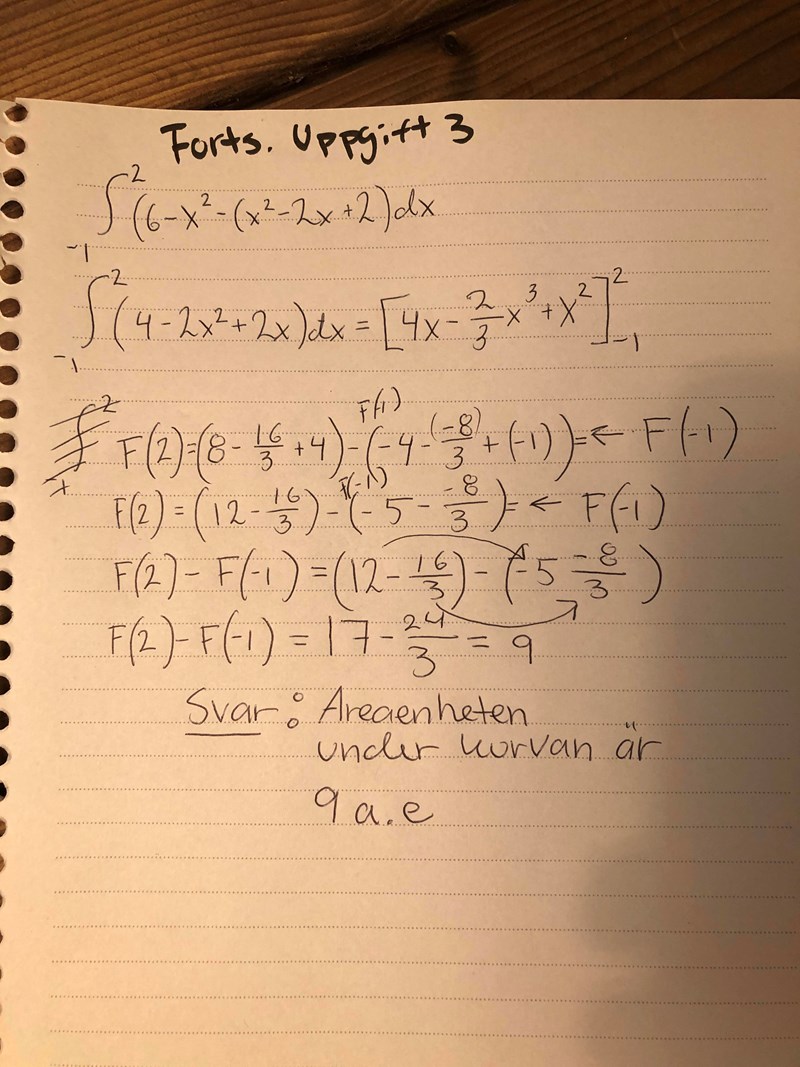 Forts. Uppgift 3
∫₋₁² (6-x²-(x²-2x+2)dx
∫₋₁² (4-2x²+2x)dx = [4x - 2/3 x³ + x²]₋₁²
F(-1)
F(2)=(8 - 16/3 + 4) - (-4 - (-8)/3 + (-1))= ← F(-1)
F(-1)
F(2) = (12 - 16/3) - (-5 - -8/3)= ← F(-1)
F(2) - F(-1) = (12 - 16/3) - (-5 -8/3)
F(2) - F(-1) = 17 - 24/3 = 9
Svar: Areaenheten
under kurvan är
9 a.e